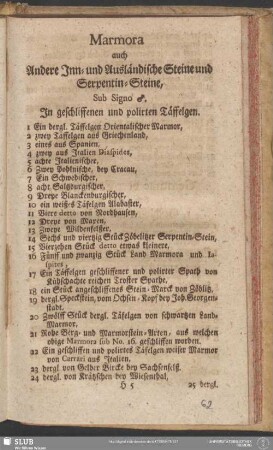 Marmora
auch
Andere Inn- und Ausländische Steine und
Serpentin-Steine,
Sub Signo ♂,
In geschliffenen und polirten Täffelgen.
1 Ein dergl. Täffelgen Orientalischer Marmor,
2 zwey Täffelgen aus Griechenland,
3 eines aus Spanien,
4 zwey aus Italien Dialpides,
5 achte Italienischer,
6 Zwey Pohlnische, bey Cracau,
7 Ein Schwedischer,
8 acht Saltzburgischer,
9 Dreye Blanckenburgischer,
10 ein weiß-s Täfelgen Alabaster,
11 Viere detto von Nordhausen,
12 Dreye von Maxen,
13 Zweye Wildenfelsser,
14 Sechs und viertzig Stück Zöbelitzer Serpentin-Stein,
15 Vierzehen Stück detto etwas kleinere,
16 Fünff und zwantzig Stück Land Marmora und Ia-
spites,
17 Ein Täffelgen geschliffener und polirter Spath von
Kühschachte reichen Troster Spathe.
18 ein Stück angeschliffenes Stein-Marck von Zöblitz,
19 dergl. Speckstein, vom Ochsen-Kopf bey Joh. Georgen-
stadt.
20 Zwölff Stück dergl. Täfelgen von schwartzen Land-
Marmor,
21 Rohe Berg- und Marmorstein-Arten, aus welchen
obige Marmora sub No. 16. geschliffen worden.
22 Ein geschliffen und polirtes Täfelgen weiser Marmor
von Carrari aus Italien.
23 dergl. von Gelber Bircke bey Sachsenfelß.
24 dergl. von Krätzschen bey Wiesenthal,
H 5 25 dergl.
SLUB